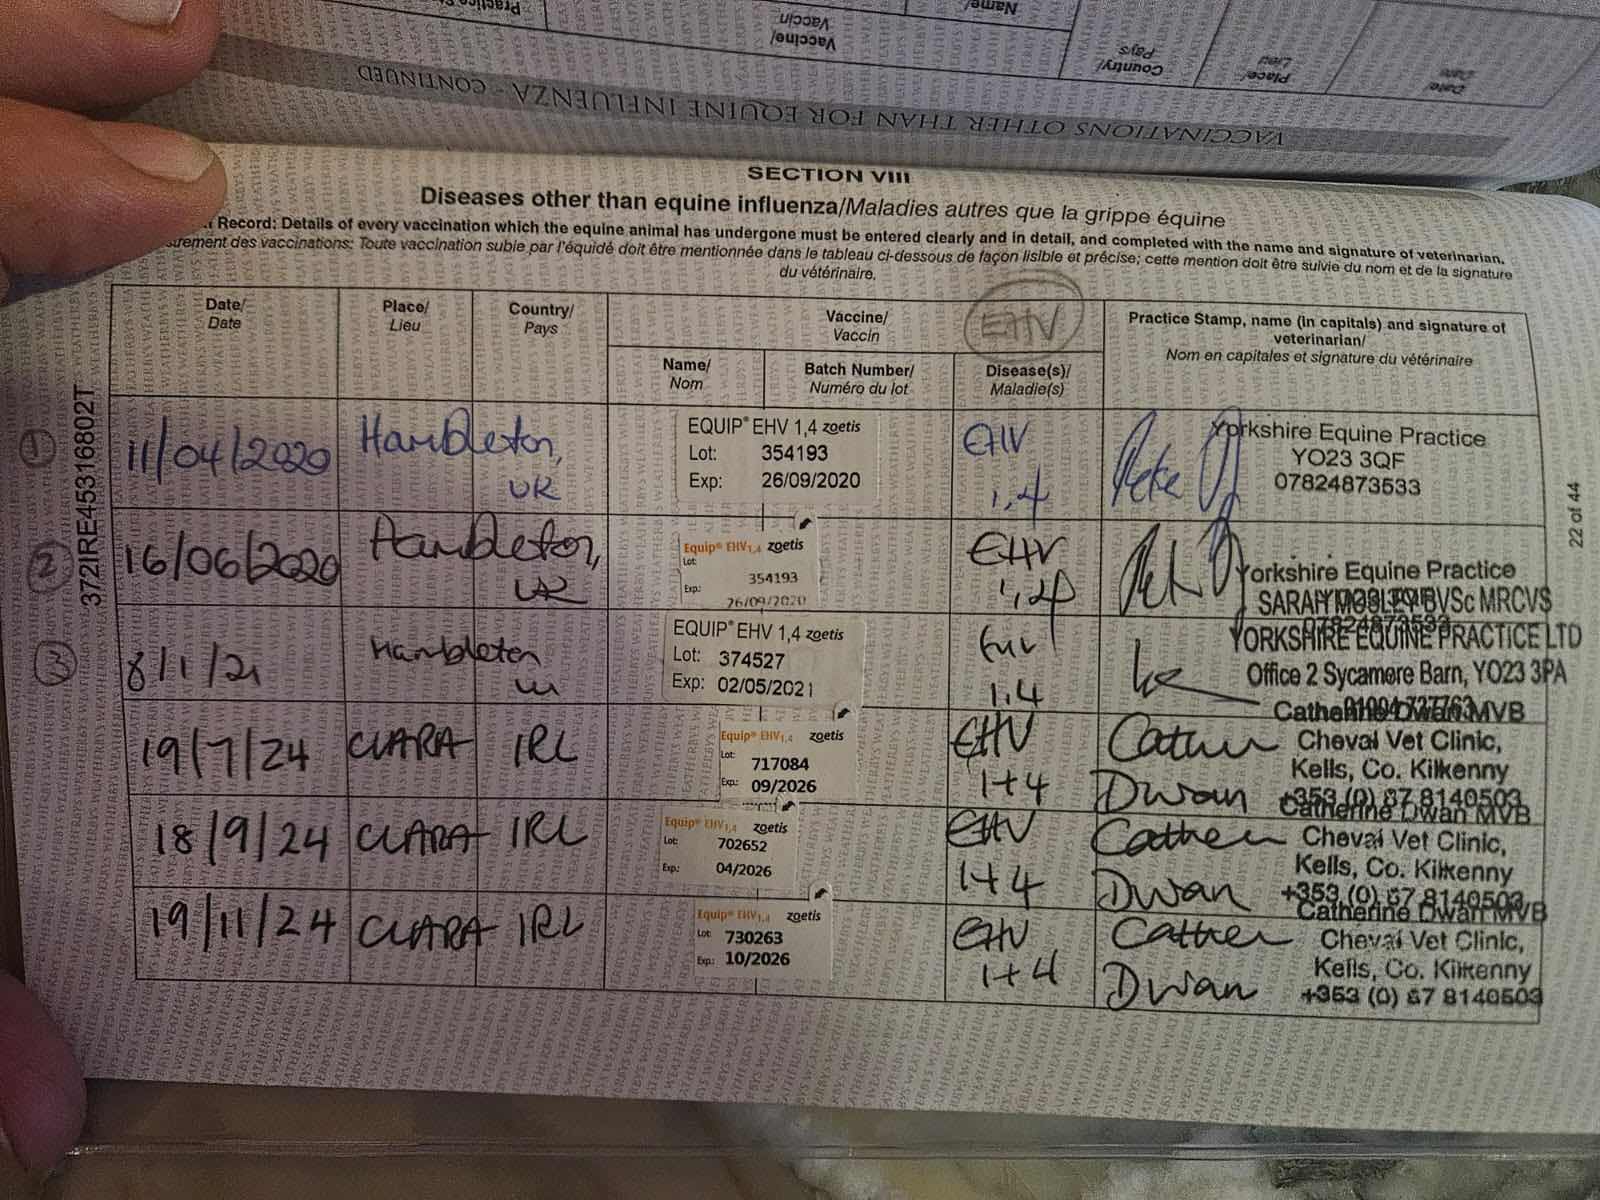 Practice
Vaccine/
Vaccin
Name/
Country/
Pays
Place/
Lieu
Date/
Date
VACCINATIONS OTHER THAN FOR EQUINE INFLUENZA - CONTINUED
SECTION VIII
Diseases other than equine influenza/Maladies autres que la grippe équine
Record: Details of every vaccination which the equine animal has undergone must be entered clearly and in detail, and completed with the name and signature of veterinarian.
des vaccinations: Toute vaccination subie par l'équidé doit être mentionnée dans le tableau ci-dessous de façon lisible et précise; cette mention doit être suivie du nom et de la signature
du vétérinaire.
Date/
Date
Place/
Lieu
Country/
Pays
Vaccine/
Vaccin
EHV
Name/
Nom
Batch Number/
Numéro du lot
Disease(s)/
Maladie(s)
Practice Stamp, name (in capitals) and signature of
veterinarian/
Nom en capitales et signature du vétérinaire
372IRE45316802T
22 of 44
1
11/04/2020
Hambleton,
UK
EQUIP® EHV 1,4 zoetis
Lot: 354193
Exp: 26/09/2020
EHV
1,4
Yorkshire Equine Practice
YO23 3QF
07824873533
2
16/06/2020
Hambleton,
UK
Equip® EHV1,4 zoetis
Lot:
354193
Exp:
26/09/2020
EHV
1,4
Yorkshire Equine Practice
3
8/1/21
Hambleton
UK
EQUIP® EHV 1,4 zoetis
Lot: 374527
Exp: 02/05/2021
EHV
1,4
SARAH MOSLEY BVSc MRCVS
YORKSHIRE EQUINE PRACTICE LTD
Office 2 Sycamore Barn, YO23 3PA
19/7/24 CLARA IRL
Equip® EHV1,4 zoetis
Lot: 717084
Exp: 09/2026
EHV
1+4
Catherine Dwan
Catherine Dwan MVB
Cheval Vet Clinic,
Kells, Co. Kilkenny
+353 (0) 87 8140503
18/9/24 CLARA IRL
Equip® EHV1,4 zoetis
Lot: 702652
Exp: 04/2026
EHV
1+4
Catherine Dwan
Catherine Dwan MVB
Cheval Vet Clinic,
Kells, Co. Kilkenny
+353 (0) 87 8140503
19/11/24 CLARA IRL
Equip® EHV1,4 zoetis
Lot: 730263
Exp: 10/2026
EHV
1+4
Catherine Dwan
Catherine Dwan MVB
Cheval Vet Clinic,
Kells, Co. Kilkenny
+353 (0) 87 8140503